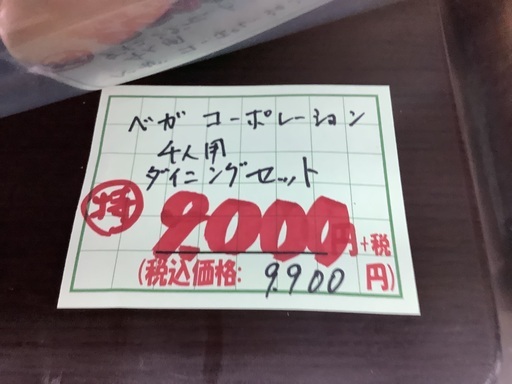 ベガ コーポレーション
4人用
ダイニングセット
特 9000円+税
(税込価格: 9.900 円)